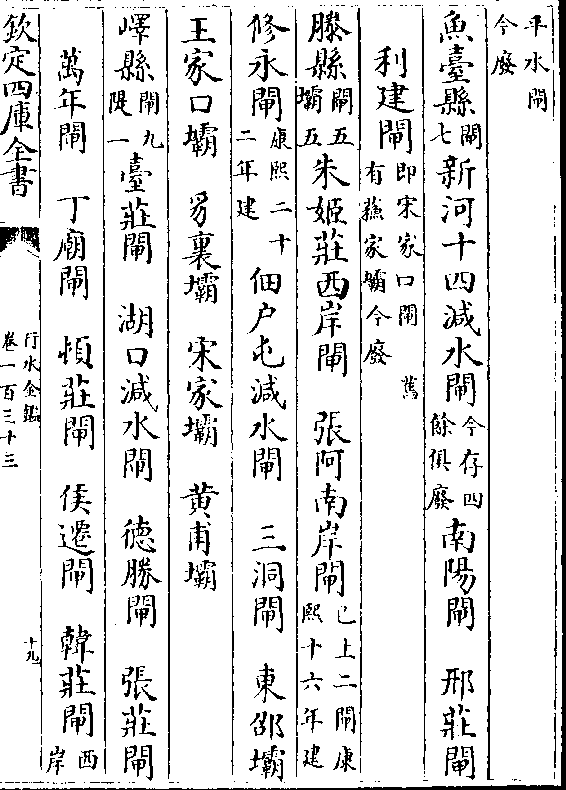 平水閘今廢
魚臺縣閘七新河十四減水閘今存四餘俱廢南陽閘 邢莊閘
利建閘即宋家口閘舊有蘓家壩今廢
滕縣閘五壩五朱姬莊西岸閘 張阿南岸閘已上二閘康熙十六年建
修永閘康熙二十二年建佃户屯減水閘 三洞閘 東邵壩
王家口壩 豸裏壩 宋家壩 黄甫壩
嶧縣閘九隄一臺莊閘 湖口減水閘 德勝閘 張莊閘
萬年閘 丁廟閘 頓莊閘 侯遷閘 韓莊閘西岸
欽定四庫全書
行水金鑑
卷一百三十三
十九